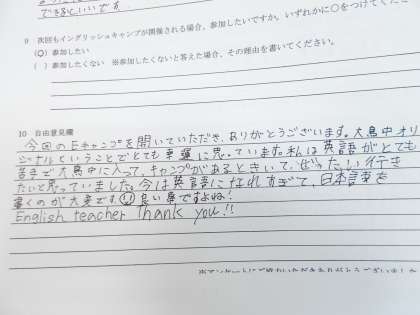 できるといいです。
9 次回もイングリッシュキャンプが開催される場合、参加したいですか。いずれかに○をつけてくだ
(○) 参加したい
( ) 参加したくない ※参加したくないと答えた場合、その理由を書いてください。
10 自由意見欄
今回のEキャンプを開いていただき、ありがとうございます。大鳥中オリ
ジナルということでとても幸運に思っています。私は英語がとても
苦手で大鳥中に入って、キャンプがあるときいて、ぜったいに行き
たいと思っていました。今は英語語になれすぎて、日本言葉を
書くのが大変です 良い事ですよね!
English teacher Thank you!!